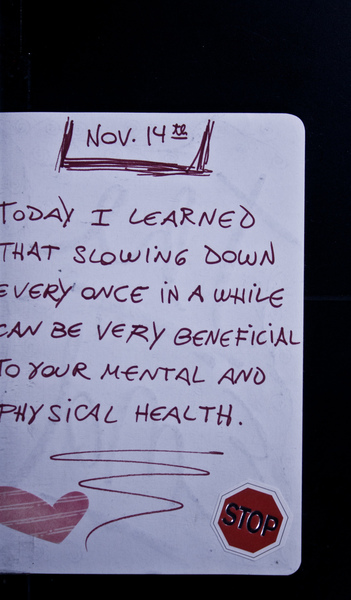 NOV. 14th
TODAY I LEARNED
THAT SLOWING DOWN
EVERY ONCE IN A WHILE
CAN BE VERY BENEFICIAL
TO YOUR MENTAL AND
PHYSICAL HEALTH.
STOP